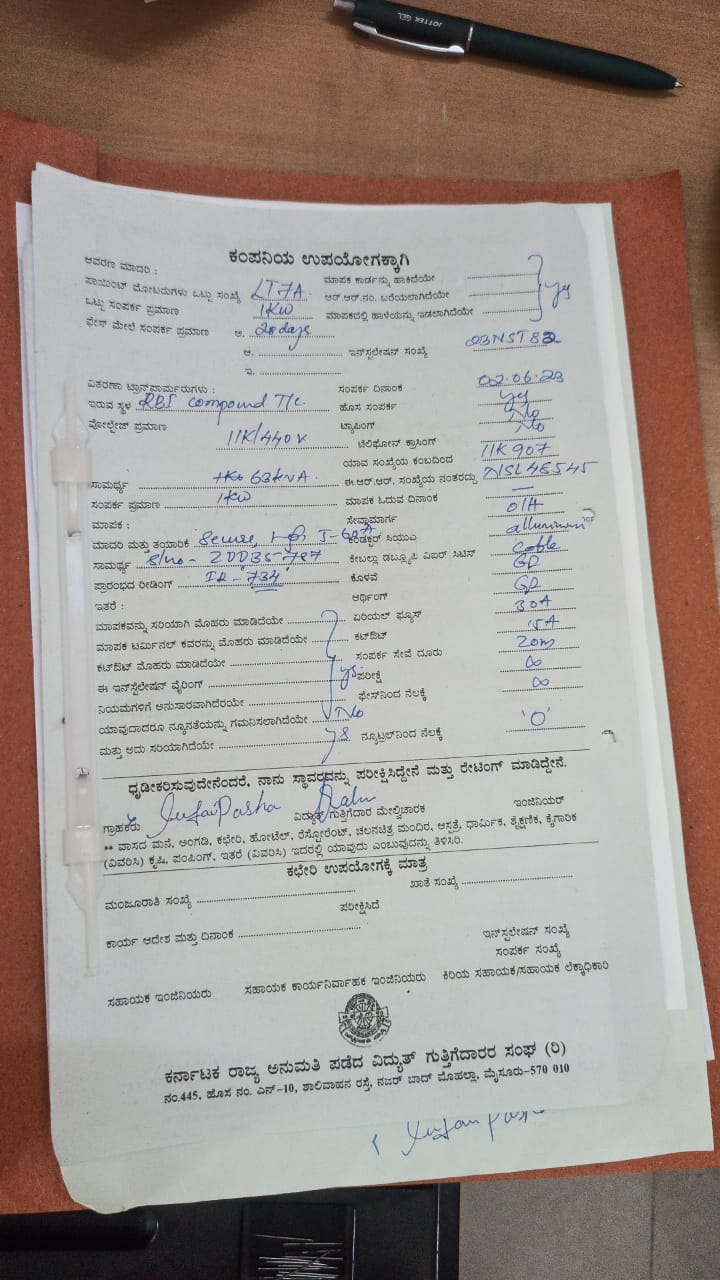 JOTTEK GEL
ಕಂಪನಿಯ ಉಪಯೋಗಕ್ಕಾಗಿ
ಆವರಣ ಮಾದರಿ :
ಪಾಯಿಂಟ್ ಮೋಟರುಗಳು ಒಟ್ಟು ಸಂಖ್ಯೆ LT7A ಮಾಪಕ ಕಾರ್ಡನ್ನು ಹಾಕಿದೆಯೇ
ಒಟ್ಟು ಸಂಪರ್ಕ ಪ್ರಮಾಣ 1KW ಆರ್.ಆರ್.ನಂ. ಬರೆಯಲಾಗಿದೆಯೇ yes
ಫೇಸ್ ಮೇಲೆ ಸಂಪರ್ಕ ಪ್ರಮಾಣ ಅ. 28 days ಮಾಪಕದಲ್ಲಿ ಹಾಳೆಯನ್ನು ಇಡಲಾಗಿದೆಯೇ
ಆ. ಇನ್‌ಸ್ಟಲೇಷನ್ ಸಂಖ್ಯೆ 23NST82
ಇ.
ವಿತರಣಾ ಟ್ರಾನ್ಸ್‌ಫಾರ್ಮರುಗಳು : ಸಂಪರ್ಕ ದಿನಾಂಕ 02.06.23
ಇರುವ ಸ್ಥಳ RBI compound T/c ಹೊಸ ಸಂಪರ್ಕ yes
ವೋಲ್ಟೇಜ್ ಪ್ರಮಾಣ 11K/440V ಟ್ಯಾಪಿಂಗ್ No
ಟೆಲಿಫೋನ್ ಕ್ರಾಸಿಂಗ್ No
ಯಾವ ಸಂಖ್ಯೆಯ ಕಂಬದಿಂದ 11K907
ಸಾಮರ್ಥ್ಯ 63KVA ಈ.ಆರ್.ಆರ್. ಸಂಖ್ಯೆಯ ನಂತರದ್ದು NSL46545
ಸಂಪರ್ಕ ಪ್ರಮಾಣ 1KW ಮಾಪಕ ಓದುವ ದಿನಾಂಕ —
ಮಾಪಕ : ಸೇವಾಮಾರ್ಗ O/H
ಮಾದರಿ ಮತ್ತು ತಯಾರಿಕೆ Secure, 5-60A ಕಂಡಕ್ಟರ್ ಸಿಯುಎ alluminum
ಸಾಮರ್ಥ್ಯ S/no - 20D35787 ಕೇಬಲ್ಲು ಡಬ್ಲ್ಯೂಪಿ ವಿಐರ್ ಸಿಟಿಸ್ Cable
ಪ್ರಾರಂಭದ ರೀಡಿಂಗ್ IR - 734 ಕೊಳವೆ GP
ಇತರೆ : ಆರ್ಥಿಂಗ್ GP
ಮಾಪಕವನ್ನು ಸರಿಯಾಗಿ ಮೊಹರು ಮಾಡಿದೆಯೇ ಏರಿಯಲ್ ಫ್ಯೂಸ್ 30A
ಮಾಪಕ ಟರ್ಮಿನಲ್ ಕವರನ್ನು ಮೊಹರು ಮಾಡಿದೆಯೇ ಕಟ್‌ಔಟ್ 15A
ಕಟ್‌ಔಟ್ ಮೊಹರು ಮಾಡಿದೆಯೇ ಸಂಪರ್ಕ ಸೇವೆ ದೂರು 20m
ಈ ಇನ್‌ಸ್ಟಲೇಷನ್ ವೈರಿಂಗ್ yes ಪರೀಕ್ಷೆ ∞
ನಿಯಮಗಳಿಗೆ ಅನುಸಾರವಾಗಿದೆರಯೇ ಫೇಸ್‌ನಿಂದ ನೆಲಕ್ಕೆ ∞
ಯಾವುದಾದರೂ ನ್ಯೂನತೆಯನ್ನು ಗಮನಿಸಲಾಗಿದೆಯೇ No
ಮತ್ತು ಅದು ಸರಿಯಾಗಿದೆಯೇ ನ್ಯೂಟ್ರಲ್‌ನಿಂದ ನೆಲಕ್ಕೆ '0'
ಧೃಢೀಕರಿಸುವುದೇನೆಂದರೆ, ನಾನು ಸ್ಥಾವರವನ್ನು ಪರೀಕ್ಷಿಸಿದ್ದೇನೆ ಮತ್ತು ರೇಟಿಂಗ್ ಮಾಡಿದ್ದೇನೆ.
ಗ್ರಾಹಕರು ವಿದ್ಯುತ್ ಗುತ್ತಿಗೆದಾರ ಮೇಲ್ವಿಚಾರಕ ಇಂಜಿನಿಯರ್
** ವಾಸದ ಮನೆ, ಅಂಗಡಿ, ಕಛೇರಿ, ಹೋಟೆಲ್, ರೆಸ್ಟೋರೆಂಟ್, ಚಲನಚಿತ್ರ ಮಂದಿರ, ಆಸ್ಪತ್ರೆ, ಧಾರ್ಮಿಕ, ಶೈಕ್ಷಣಿಕ, ಕೈಗಾರಿಕ
(ವಿವರಿಸಿ) ಕೃಷಿ, ಪಂಪಿಂಗ್, ಇತರೆ (ವಿವರಿಸಿ) ಇದರಲ್ಲಿ ಯಾವುದು ಎಂಬುವುದನ್ನು ತಿಳಿಸಿರಿ.
ಕಛೇರಿ ಉಪಯೋಗಕ್ಕೆ ಮಾತ್ರ
ಮಂಜೂರಾತಿ ಸಂಖ್ಯೆ ಖಾತೆ ಸಂಖ್ಯೆ
ಪರೀಕ್ಷಿಸಿದೆ
ಕಾರ್ಯ ಆದೇಶ ಮತ್ತು ದಿನಾಂಕ ಇನ್‌ಸ್ಟಲೇಷನ್ ಸಂಖ್ಯೆ
ಸಂಪರ್ಕ ಸಂಖ್ಯೆ
ಸಹಾಯಕ ಇಂಜಿನಿಯರು ಸಹಾಯಕ ಕಾರ್ಯನಿರ್ವಾಹಕ ಇಂಜಿನಿಯರು ಕಿರಿಯ ಸಹಾಯಕ/ಸಹಾಯಕ ಲೆಕ್ಕಾಧಿಕಾರಿ
ಕರ್ನಾಟಕ ರಾಜ್ಯ ಅನುಮತಿ ಪಡೆದ ವಿದ್ಯುತ್ ಗುತ್ತಿಗೆದಾರರ ಸಂಘ (ರಿ)
ನಂ.445, ಹೊಸ ನಂ. ಎನ್-10, ಶಾಲಿವಾಹನ ರಸ್ತೆ, ನಜರ್ ಬಾದ್ ಮೊಹಲ್ಲಾ, ಮೈಸೂರು-570 010